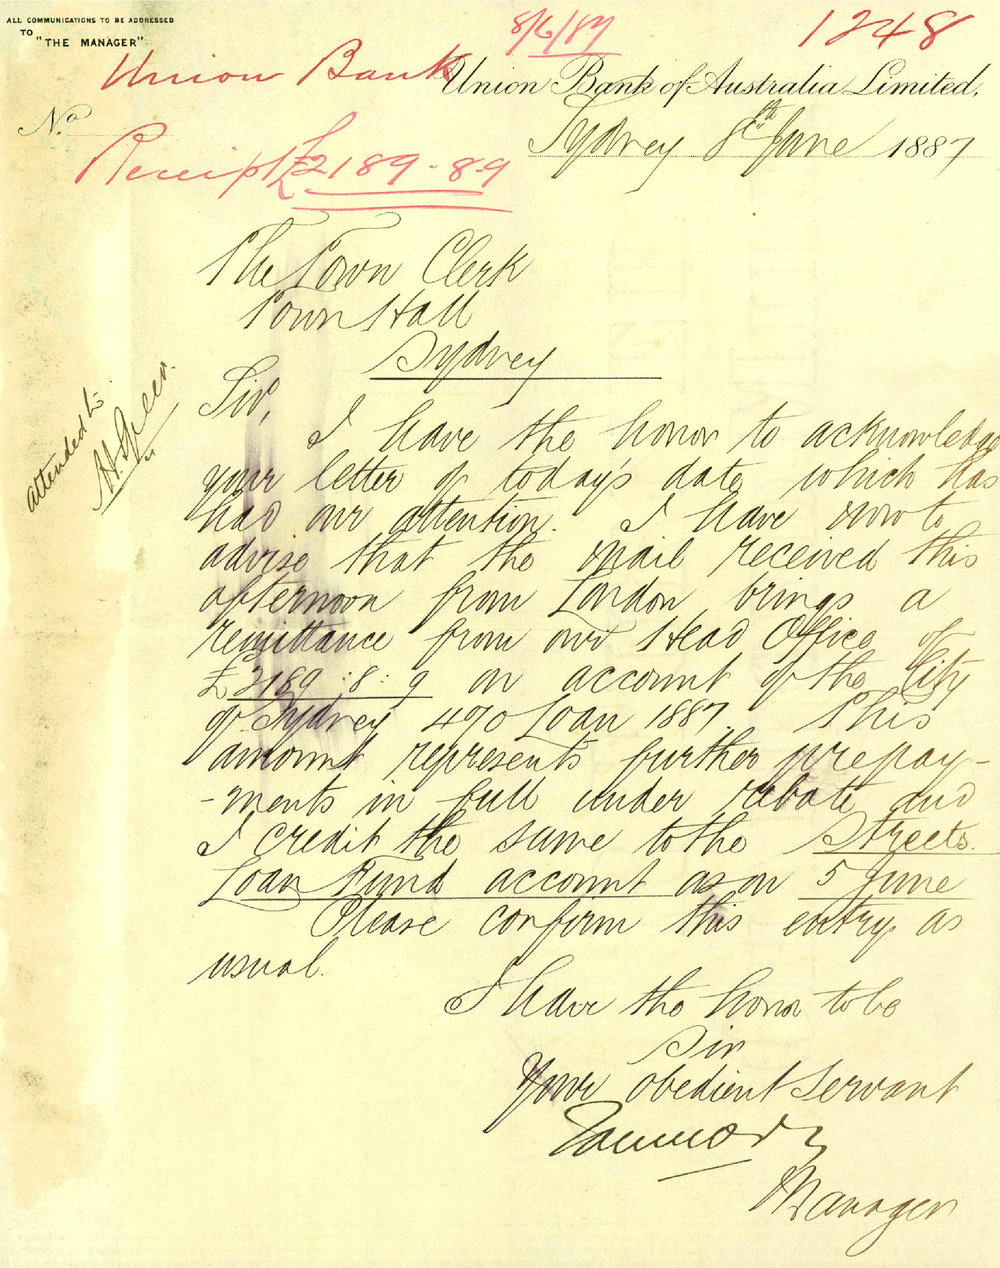 ALL COMMUNICATIONS TO BE ADDRESSED
TO
"THE MANAGER"
8/6/87
1248
Union Bank
Union Bank of Australia Limited,
No.
Sydney 8th June 1887
Receipt £2189-8-9
The Town Clerk
Town Hall
Sydney
attended to
Sir,
I have the honor to acknowledge
your letter of today's date which has
had our attention. I have now to
advise that the mail received this
afternoon from London brings a
remittance from our Head Office of
£2189:8:9 on account of the City
of Sydney 4% Loan 1887. This
amount represents further prepay-
-ments in full under rebate and
I credit the same to the Streets
Loan Fund account as on 5 June
Please confirm this entry as
usual.
I have the honor to be
Sir
Your obedient servant
Manager